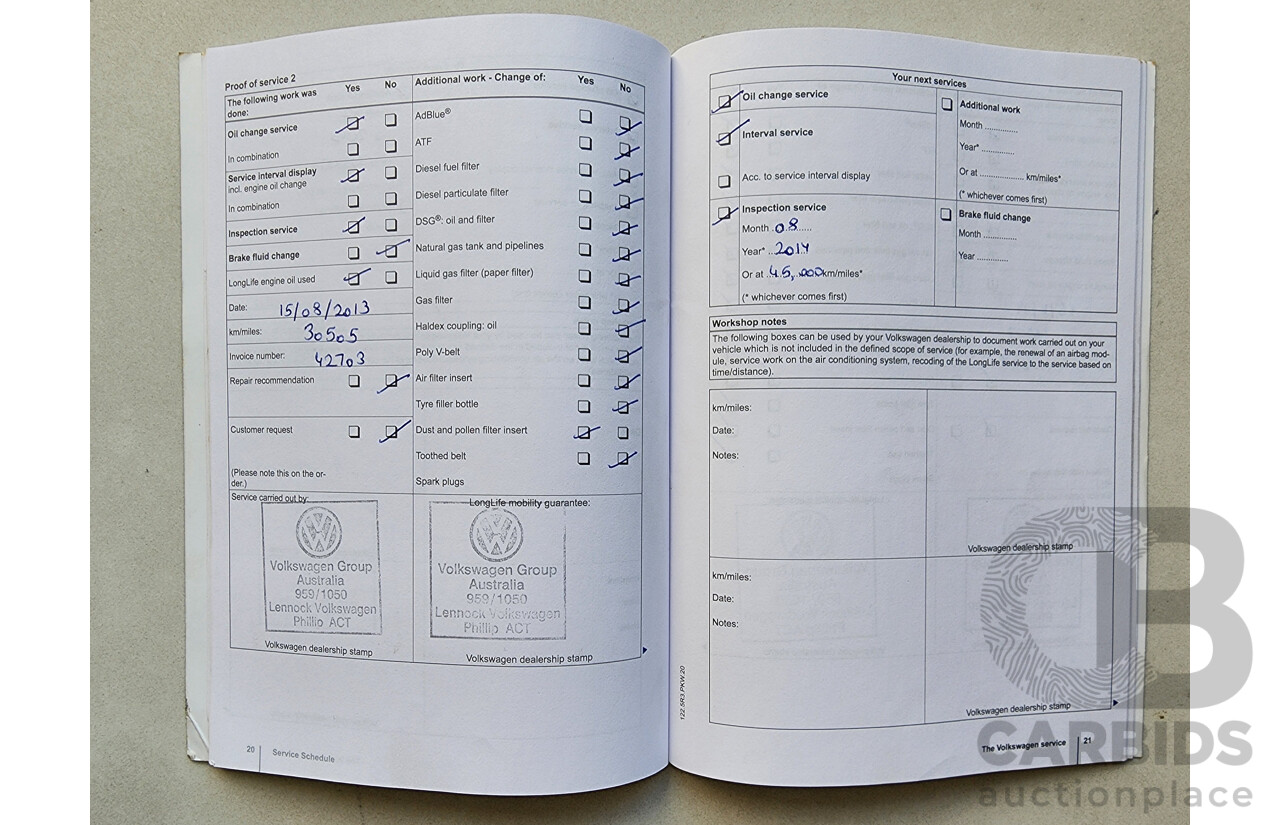 Proof of service 2
The following work was done: Yes No
Oil change service
In combination
Service interval display
incl. engine oil change
In combination
Inspection service
Brake fluid change
LongLife engine oil used
Date: 15/08/2013
km/miles: 30505
Invoice number: 42703
Repair recommendation
Customer request
(Please note this on the or-
der.)
Service carried out by:
Volkswagen Group
Australia
959/1050
Lennock Volkswagen
Phillip ACT
Volkswagen dealership stamp
Additional work - Change of: Yes No
AdBlue®
ATF
Diesel fuel filter
Diesel particulate filter
DSG®: oil and filter
Natural gas tank and pipelines
Liquid gas filter (paper filter)
Gas filter
Haldex coupling: oil
Poly V-belt
Air filter insert
Tyre filler bottle
Dust and pollen filter insert
Toothed belt
Spark plugs
LongLife mobility guarantee:
Volkswagen Group
Australia
959/1050
Lennock Volkswagen
Phillip ACT
Volkswagen dealership stamp
20 Service Schedule
Your next services
Oil change service
Interval service
Acc. to service interval display
Inspection service
Month 08
Year* 2014
Or at 45,000 km/miles*
(* whichever comes first)
Additional work
Month ..............
Year* ..............
Or at .................... km/miles*
(* whichever comes first)
Brake fluid change
Month ..............
Year .............
Workshop notes
The following boxes can be used by your Volkswagen dealership to document work carried out on your
vehicle which is not included in the defined scope of service (for example, the renewal of an airbag mod-
ule, service work on the air conditioning system, recoding of the LongLife service to the service based on
time/distance).
km/miles:
Date:
Notes:
Volkswagen dealership stamp
km/miles:
Date:
Notes:
Volkswagen dealership stamp
122.5R3.PKW.20
The Volkswagen service 21
CB
CARBIDS
auctionplace